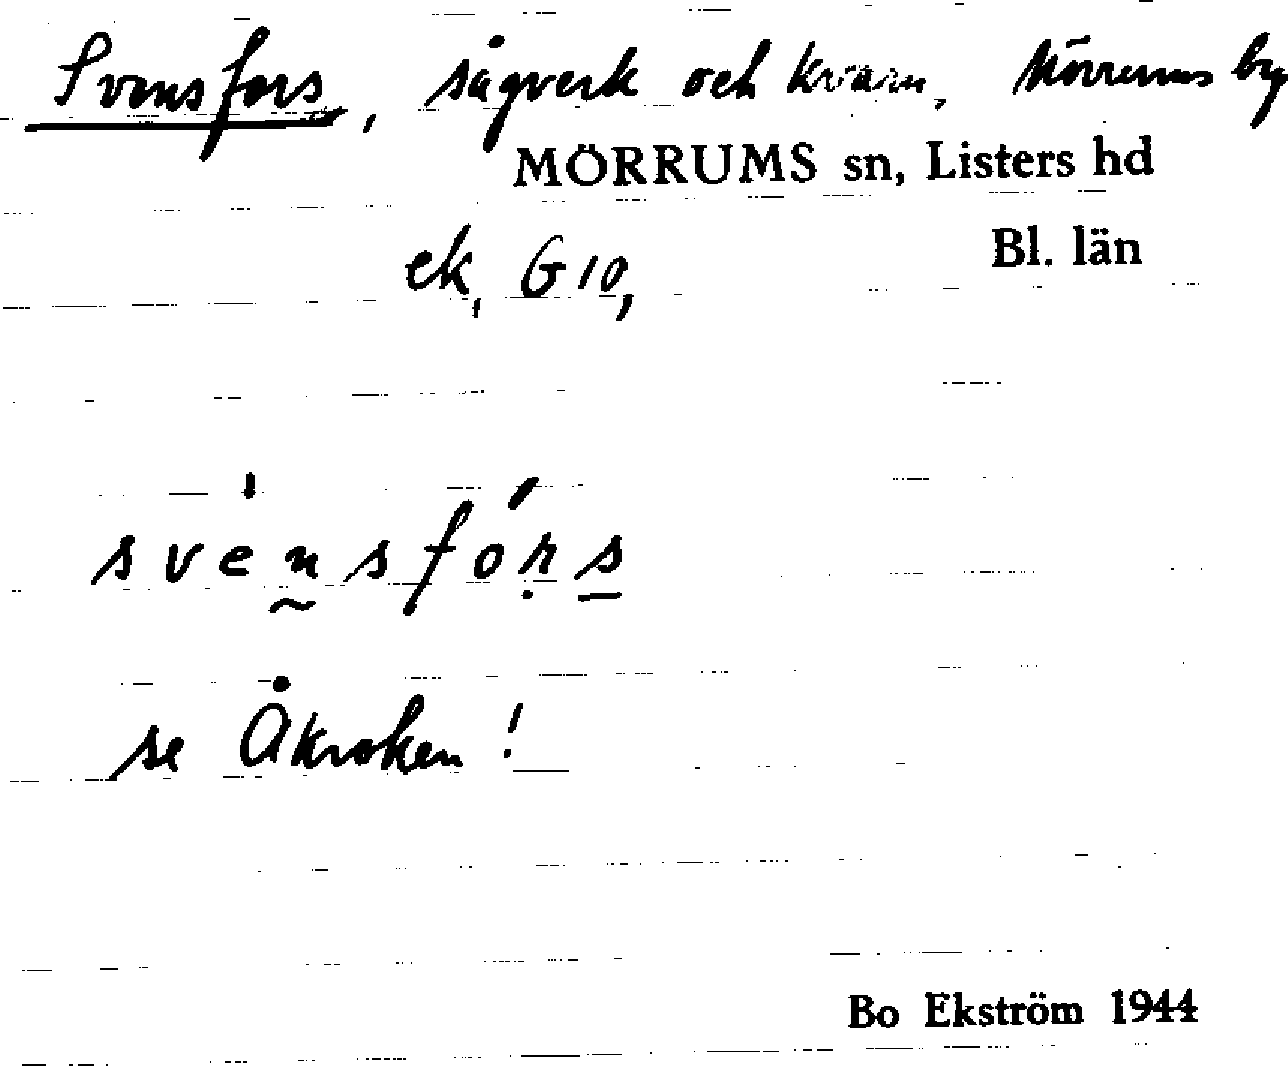 Svensfors, sågverk och kvarn, Mörrums by
MÖRRUMS sn, Listers hd
ek, G 10, Bl. län
svénsfórs
se Åkroken!
Bo Ekström 1944